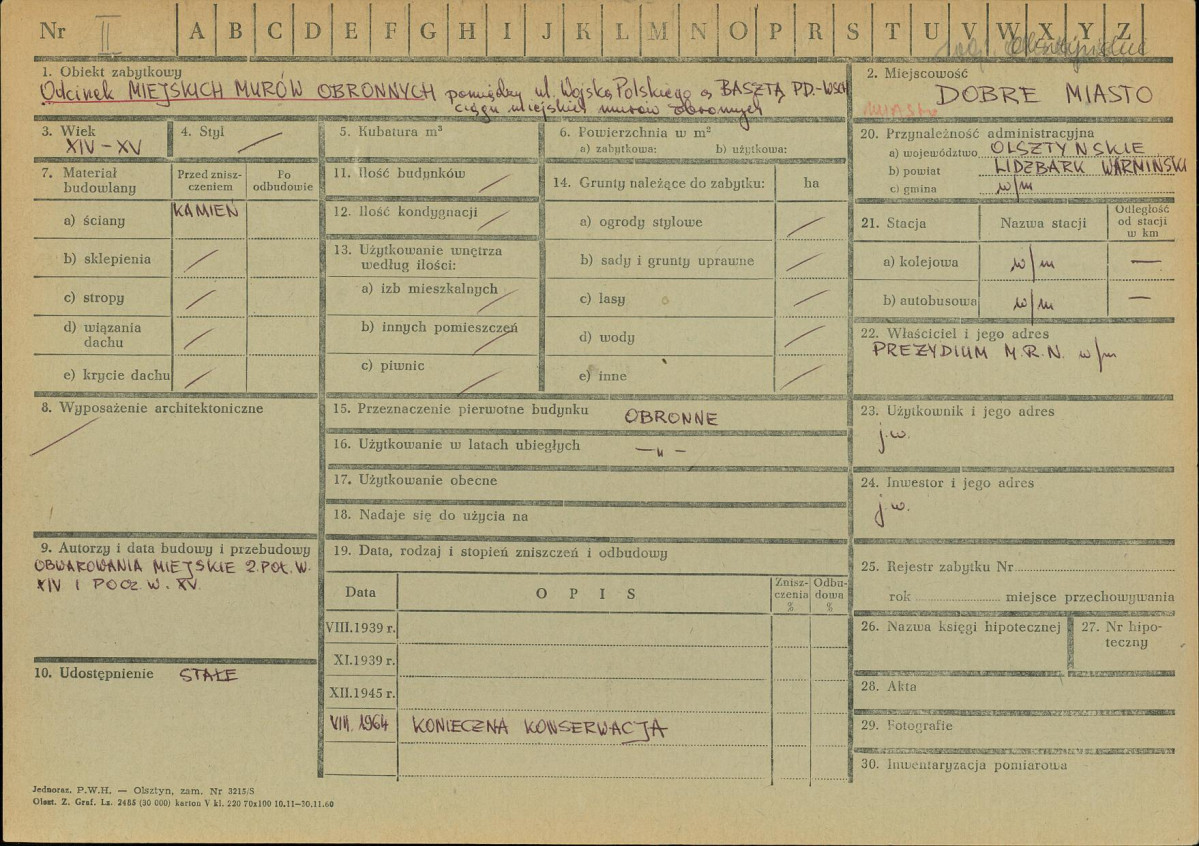 Nr II A B C D E F G H I J K L M N O P R S T U V W X Y Z
1. Obiekt zabytkowy
Odcinek MIEJSKICH MURÓW OBRONNYCH pomiędzy ul. Wojska Polskiego a BASZTĄ PD.-WSCH
ciągu miejskich murów obronnych
2. Miejscowość
DOBRE MIASTO
miasto
3. Wiek
XIV – XV
4. Styl
5. Kubatura m³
6. Powierzchnia w m²
a) zabytkowa: b) użytkowa:
7. Materiał budowlany
Przed znisz-
czeniem
Po
odbudowie
a) ściany KAMIEŃ
b) sklepienia
c) stropy
d) wiązania
dachu
e) krycie dachu
8. Wyposażenie architektoniczne
9. Autorzy i data budowy i przebudowy
OBWAROWANIA MIEJSKIE 2. POŁ. W.
XIV I POCZ. W. XV.
10. Udostępnienie STAŁE
11. Ilość budynków
12. Ilość kondygnacji
13. Użytkowanie wnętrza
według ilości:
a) izb mieszkalnych
b) innych pomieszczeń
c) piwnic
14. Grunty należące do zabytku: ha
a) ogrody stylowe
b) sady i grunty uprawne
c) lasy
d) wody
e) inne
15. Przeznaczenie pierwotne budynku OBRONNE
16. Użytkowanie w latach ubiegłych — „ —
17. Użytkowanie obecne
18. Nadaje się do użycia na
19. Data, rodzaj i stopień zniszczeń i odbudowy
Data O P I S
Znisz-
czenia
%
Odbu-
dowa
%
VIII.1939 r.
XI.1939 r.
XII.1945 r.
VIII. 1964 KONIECZNA KONSERWACJA
20. Przynależność administracyjna
a) województwo OLSZTYŃSKIE
b) powiat LIDZBARK WARMIŃSKI
c) gmina w/m
21. Stacja Nazwa stacji
Odległość
od stacji
w km
a) kolejowa w/m —
b) autobusowa w/m —
22. Właściciel i jego adres
PREZYDIUM M.R.N. w/m
23. Użytkownik i jego adres
j.w.
24. Inwestor i jego adres
j.w.
25. Rejestr zabytku Nr
rok miejsce przechowywania
26. Nazwa księgi hipotecznej
27. Nr hipo-
teczny
28. Akta
29. Fotografie
30. Inwentaryzacja pomiarowa
Jednoraz. P.W.H. — Olsztyn, zam. Nr 3215/S
Olszt. Z. Graf. Lz. 2485 (30 000) karton V kl. 220 70x100 10.11—30.11.60